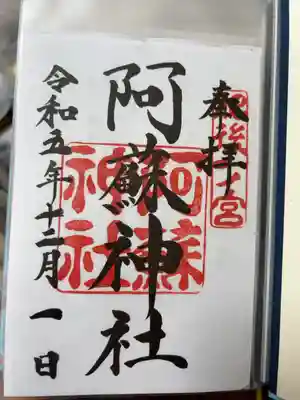 奉拝
肥後一宮
阿蘇神社
阿蘇神社
令和五年十二月一日